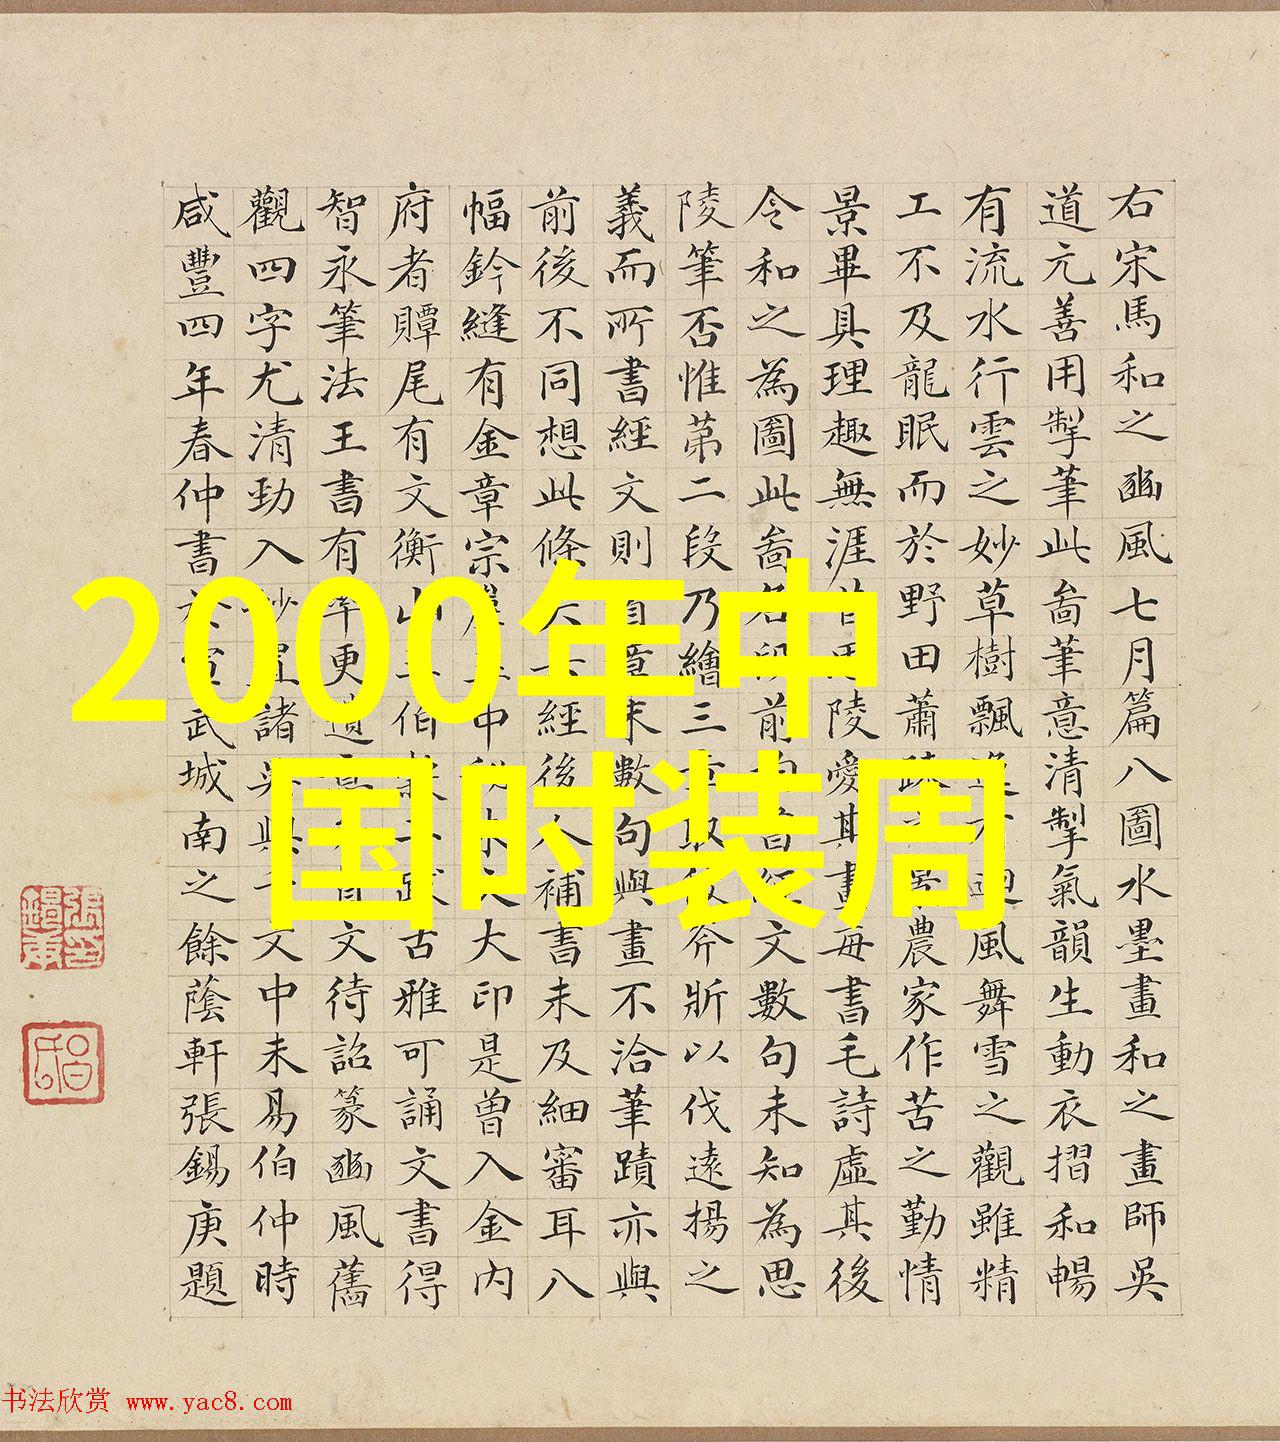 右宋馬和之豳風七月篇八圖水墨畫和之畫師吳
道元善用掣筆此啚筆意清掣氣韻生動衣摺和暢
有流水行雲之妙草樹飄迴風舞雪之觀雖精
工不及龍眠而於野田蕭疎農家作苦之勤情
景畢具理趣無涯昔思陵愛其畫每書毛詩虛其後
令和之為圖此啚各段前均書經文數句未知為思
陵筆否惟第二段乃繪三章取彼斧斨以伐遠揚之
義而所書經文則首章末數句與畫不洽筆蹟亦與
前後不同想此條大經後人補書未及細審耳八
幅鈐縫有金章宗中秘大印是曾入金內
府者贉尾有文衡山王伯穀二跋古雅可誦文書得
智永筆法王書有率更遺意有文待詔篆豳風舊
觀四字尤清勁入妙置諸吳興千文中未易伯仲時
咸豐四年春仲書於宣武城南之餘蔭軒張錫庚題
2000年中
国时装周
书法欣赏 www.yac8.com